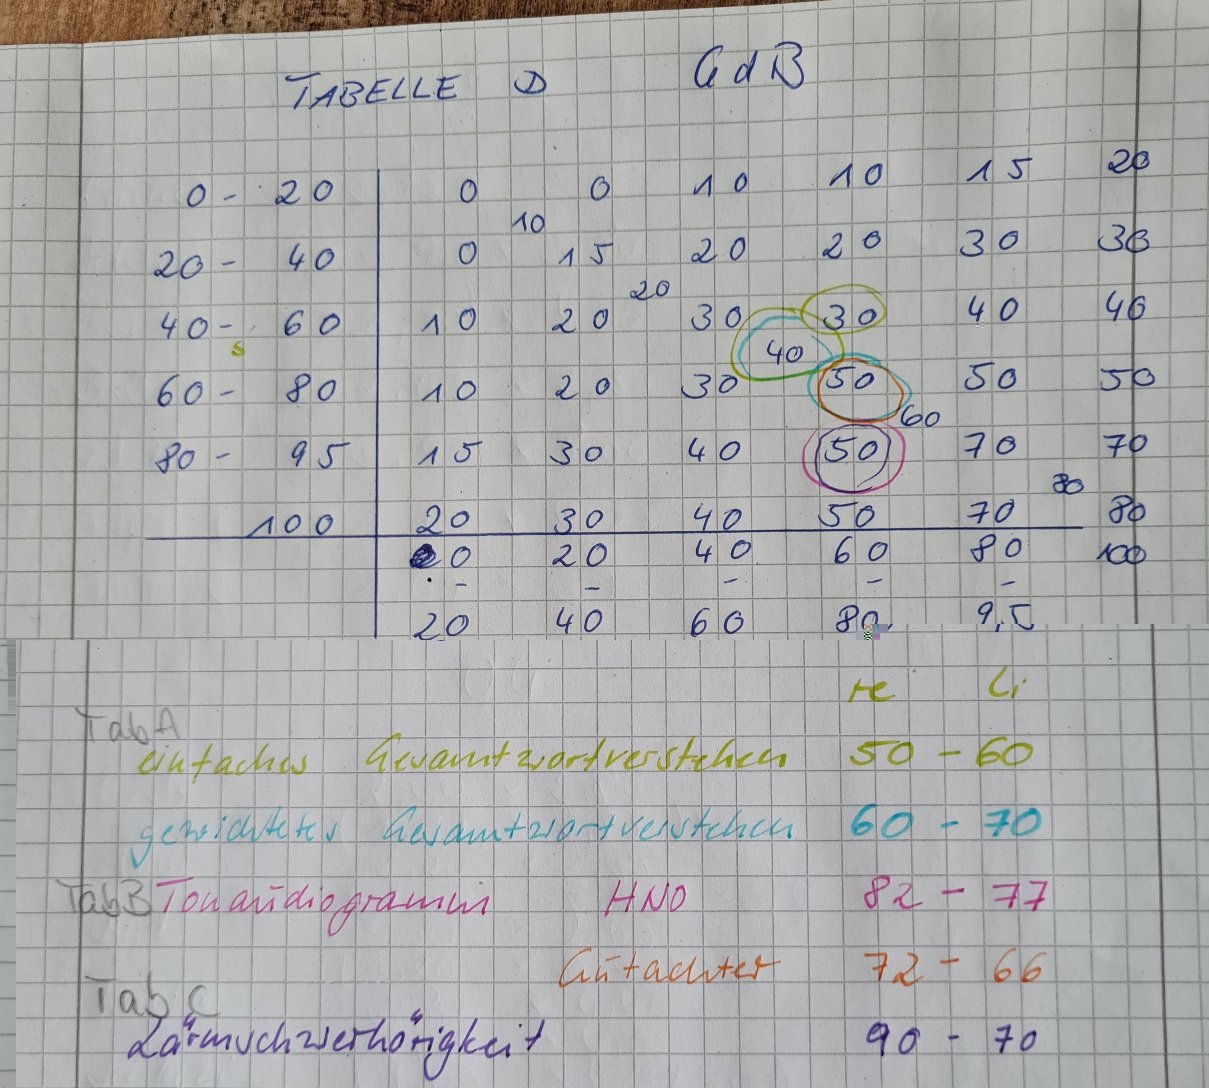 TABELLE D GdB
0 - 20 0 0 10 10 15 20
10
20 - 40 0 15 20 20 30 30
20
40 - 60 10 20 30 30 40 40
40
60 - 80 10 20 30 50 50 50
60
80 - 95 15 30 40 50 70 70
80
100 20 30 40 50 70 80
0 20 40 60 80 100
- - - - -
20 40 60 80 95
re Li
Tab A
einfaches Gesamtwortverstehen 50 - 60
gewichtetes Gesamtwortverstehen 60 - 70
Tab B Tonaudiogramm HNO 82 - 77
Gutachter 72 - 66
Tab C
Lärmschwerhörigkeit 90 - 70